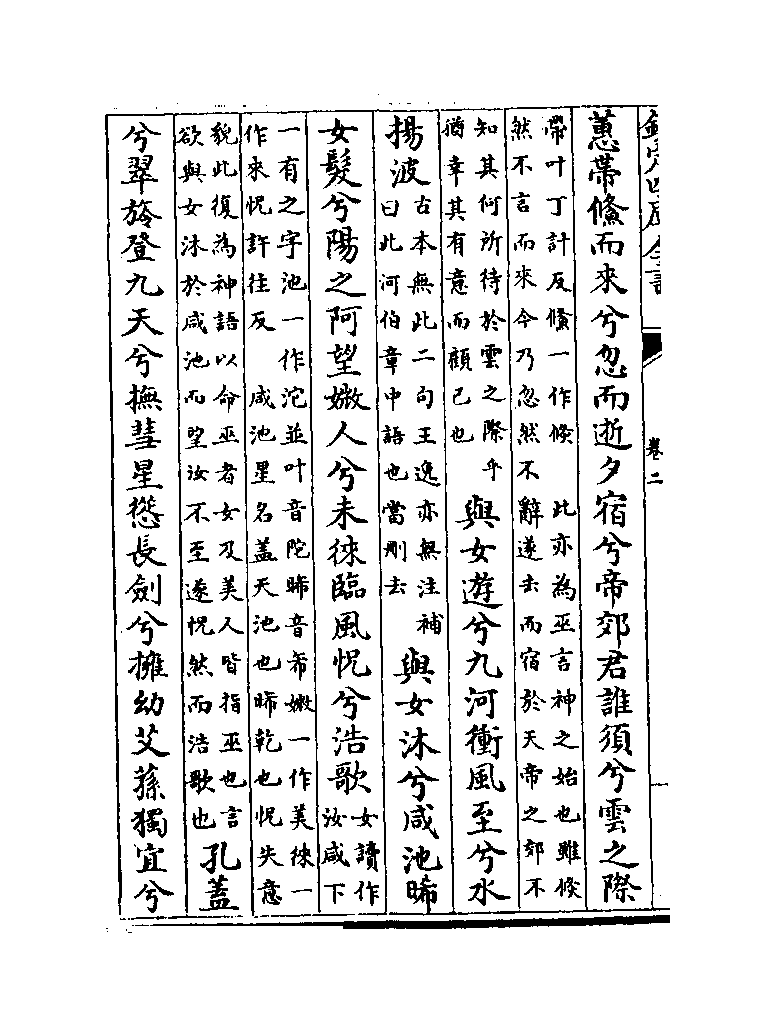 欽定四庫全書
卷二
蕙帶儵而來兮忽而逝夕宿兮帝郊君誰須兮雲之際
帶叶丁計反儵一作倏　此亦為巫言神之始也雖倏
然不言而來今乃忽然不辭遂去而宿於天帝之郊不
知其何所待於雲之際乎
猶幸其有意而顧己也
與女遊兮九河衝風至兮水
揚波
古本無此二句王逸亦無注補
曰此河伯章中語也當刪去
與女沐兮咸池晞
女髮兮陽之阿望媺人兮未徠臨風怳兮浩歌
女讀作
汝咸下
一有之字池一作沱並叶音陀晞音希媺一作美徠一
作來怳許往反　咸池星名蓋天池也晞乾也怳失意
貌此復為神語以命巫者女及美人皆指巫也言
欲與女沐於咸池而望汝不至遂怳然而浩歌也
孔蓋
兮翠旍登九天兮撫彗星慫長劍兮擁幼艾蓀獨宜兮